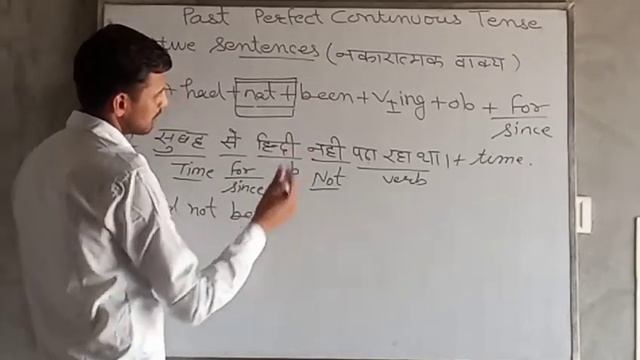 Past Perfect Continuous Tense
tive sentences (नकारात्मक वाक्य)
+ had + not + been + V1ing + ob + for
since
सुबह से हिन्दी नहीं पढा रहा था। + time.
Time for b Not verb
since
d not be